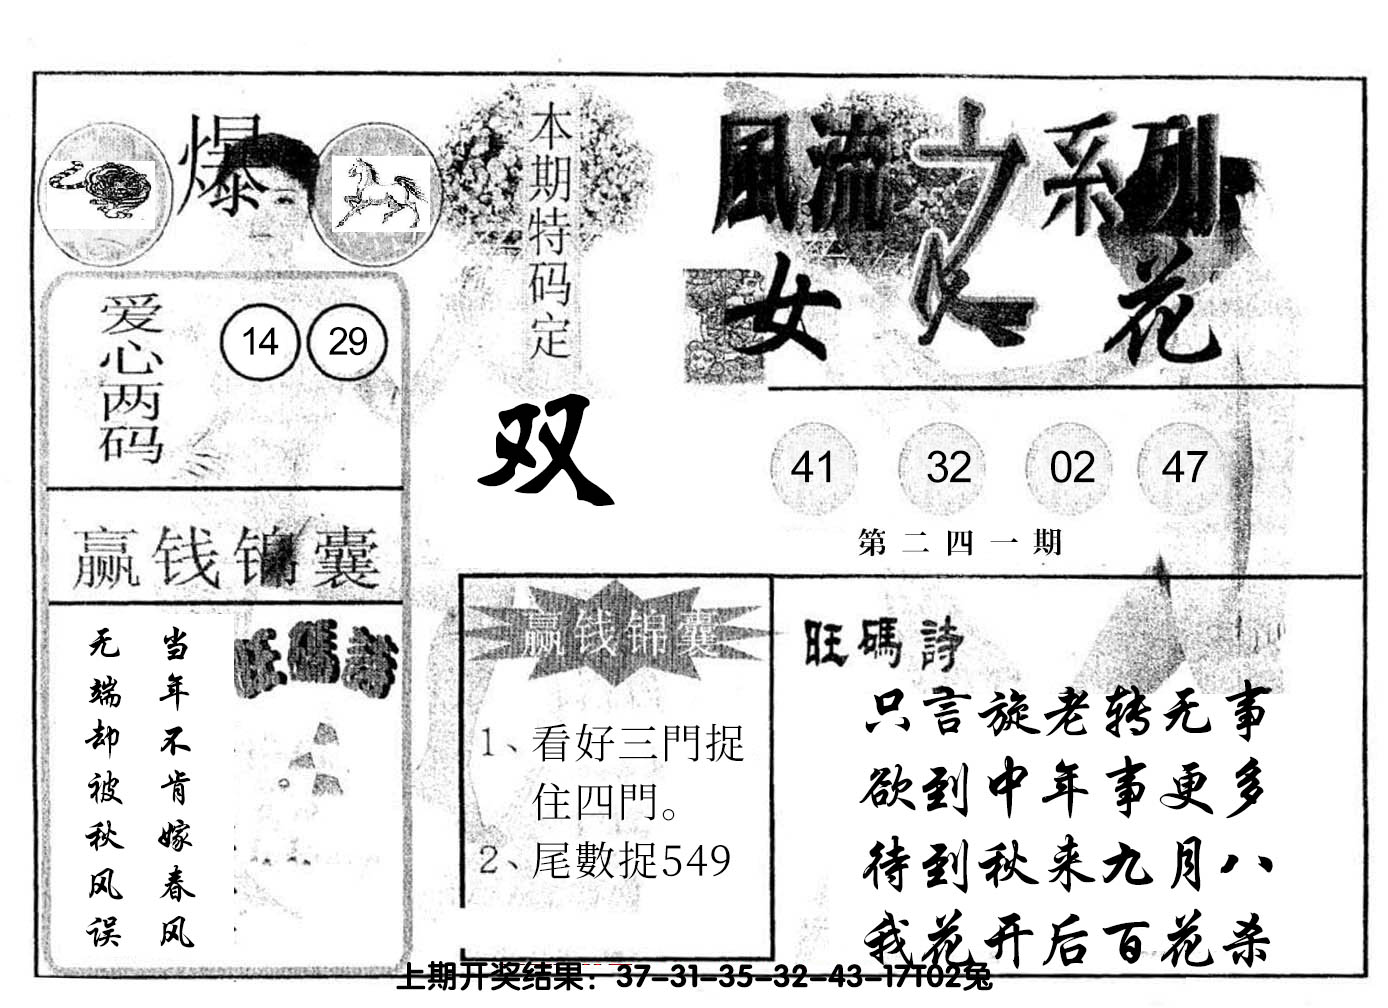 爆
本期特码定
双
風流之系列
女人花
爱心两码
14 29
41 32 02 47
第二四一期
赢钱锦囊
旺碼詩
当年不肯嫁春风
无端却被秋风误
赢钱锦囊
1、看好三門捉
住四門。
2、尾數捉549
旺碼詩
只言旋老转无事
欲到中年事更多
待到秋来九月八
我花开后百花杀
上期开奖结果：37-31-35-32-43-17T02兔